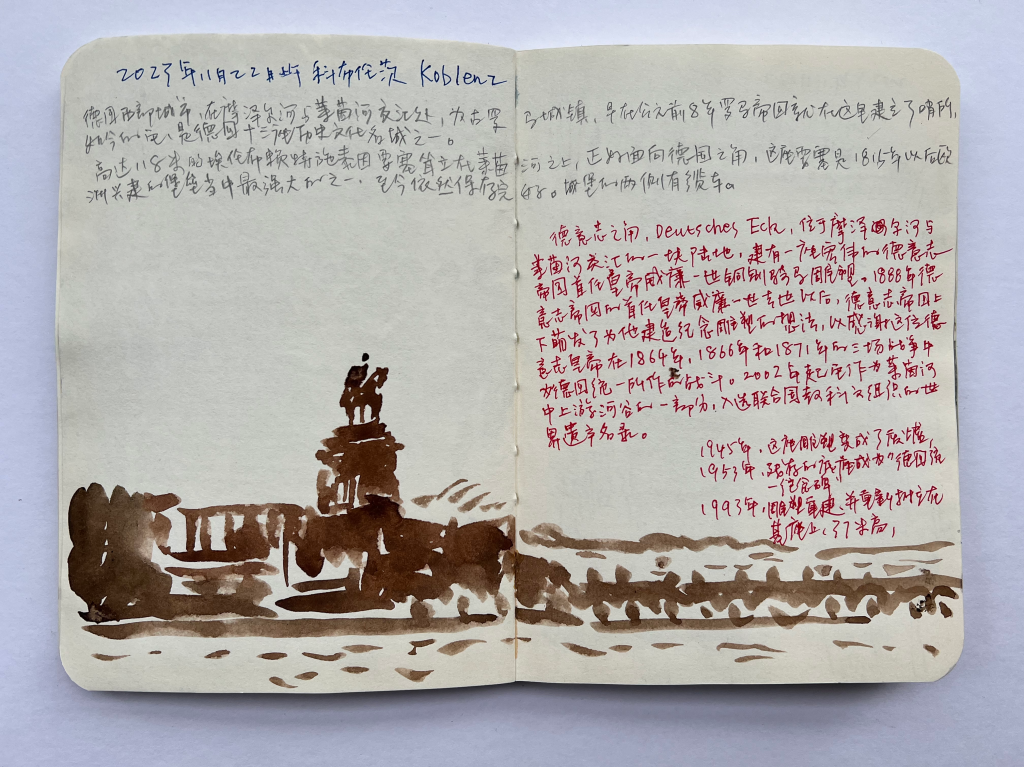 2023年11月22日 科布伦茨 Koblenz
德国西部城市,在摩泽尔河与莱茵河交汇处,为古罗马城镇,早在公元前8年罗马帝国就在这里建立了哨所,
如今的它,是德国十三座历史文化名城之一。
高达118米的埃伦布赖特施泰因要塞耸立在莱茵河之上,正好面向德国之角,这座要塞是1815年以后欧
洲兴建的堡垒当中最强大的之一,至今依然保存完好。城堡的两侧有缆车。
德意志之角,Deutsches Eck,位于摩泽尔河与
莱茵河交汇的一块陆地,建有一座宏伟的德意志
帝国首任皇帝威廉一世铜制骑马雕塑。1888年德
意志帝国的首任皇帝威廉一世去世以后,德意志帝国上
下萌发了为他建造纪念雕塑的想法,以感谢这位德
意志皇帝在1864年,1866年和1871年的三场战争中
为德国统一所作的战斗。2002年起它作为莱茵河
中上游河谷的一部分,入选联合国教科文组织的世
界遗产名录。
1945年,这座雕塑变成了废墟,
1953年,残存的底座成为"德国统
一纪念碑"
1993年,雕塑重建,并重新树立在
基座上,37米高,